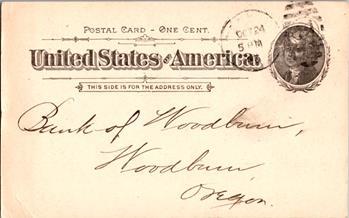 POSTAL CARD - ONE CENT.
United States of America.
THIS SIDE IS FOR THE ADDRESS ONLY.
OCT 24
5 PM
Bank of Woodburn,
Woodburn
Oregon.